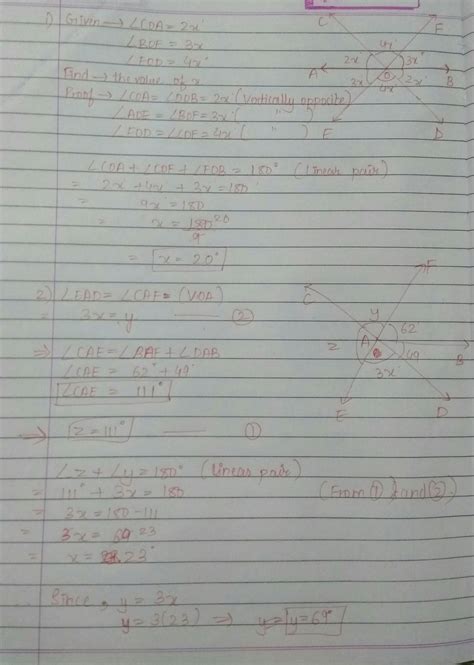 1) Given → ∠COA = 2x°
∠BOF = 3x
∠EOD = 4x°
Find → the value of x
Proof → ∠COA = ∠DOB = 2x° (Vertically opposite)
∠AOE = ∠BOF = 3x° ( " )
∠EOD = ∠COF = 4x ( " )
C
F
4x°
2x
3x°
A
O
B
3x
2x°
4x°
E
D
∠COA + ∠COF + ∠FOB = 180° (linear pair)
= 2x + 4x + 3x = 180
= 9x = 180
= x = 180 20
9
= x = 20°
2) ∠EAD = ∠CAF = (VOA)
= 3x = y — ②
⇒ ∠CAE = ∠BAF + ∠DAB
∠CAE = 62° + 49°
∠CAE = 111°
→ z = 111° — ①
F
C
y
62
z
A
49
B
3x°
E
D
∠z + ∠y = 180° (linear pair)
= 111° + 3x = 180 (From ① and ②)
= 3x = 180 - 111
= 3x = 69 23
= x = 23°
Since, y = 3x
y = 3(23) ⇒ y = y = 69°